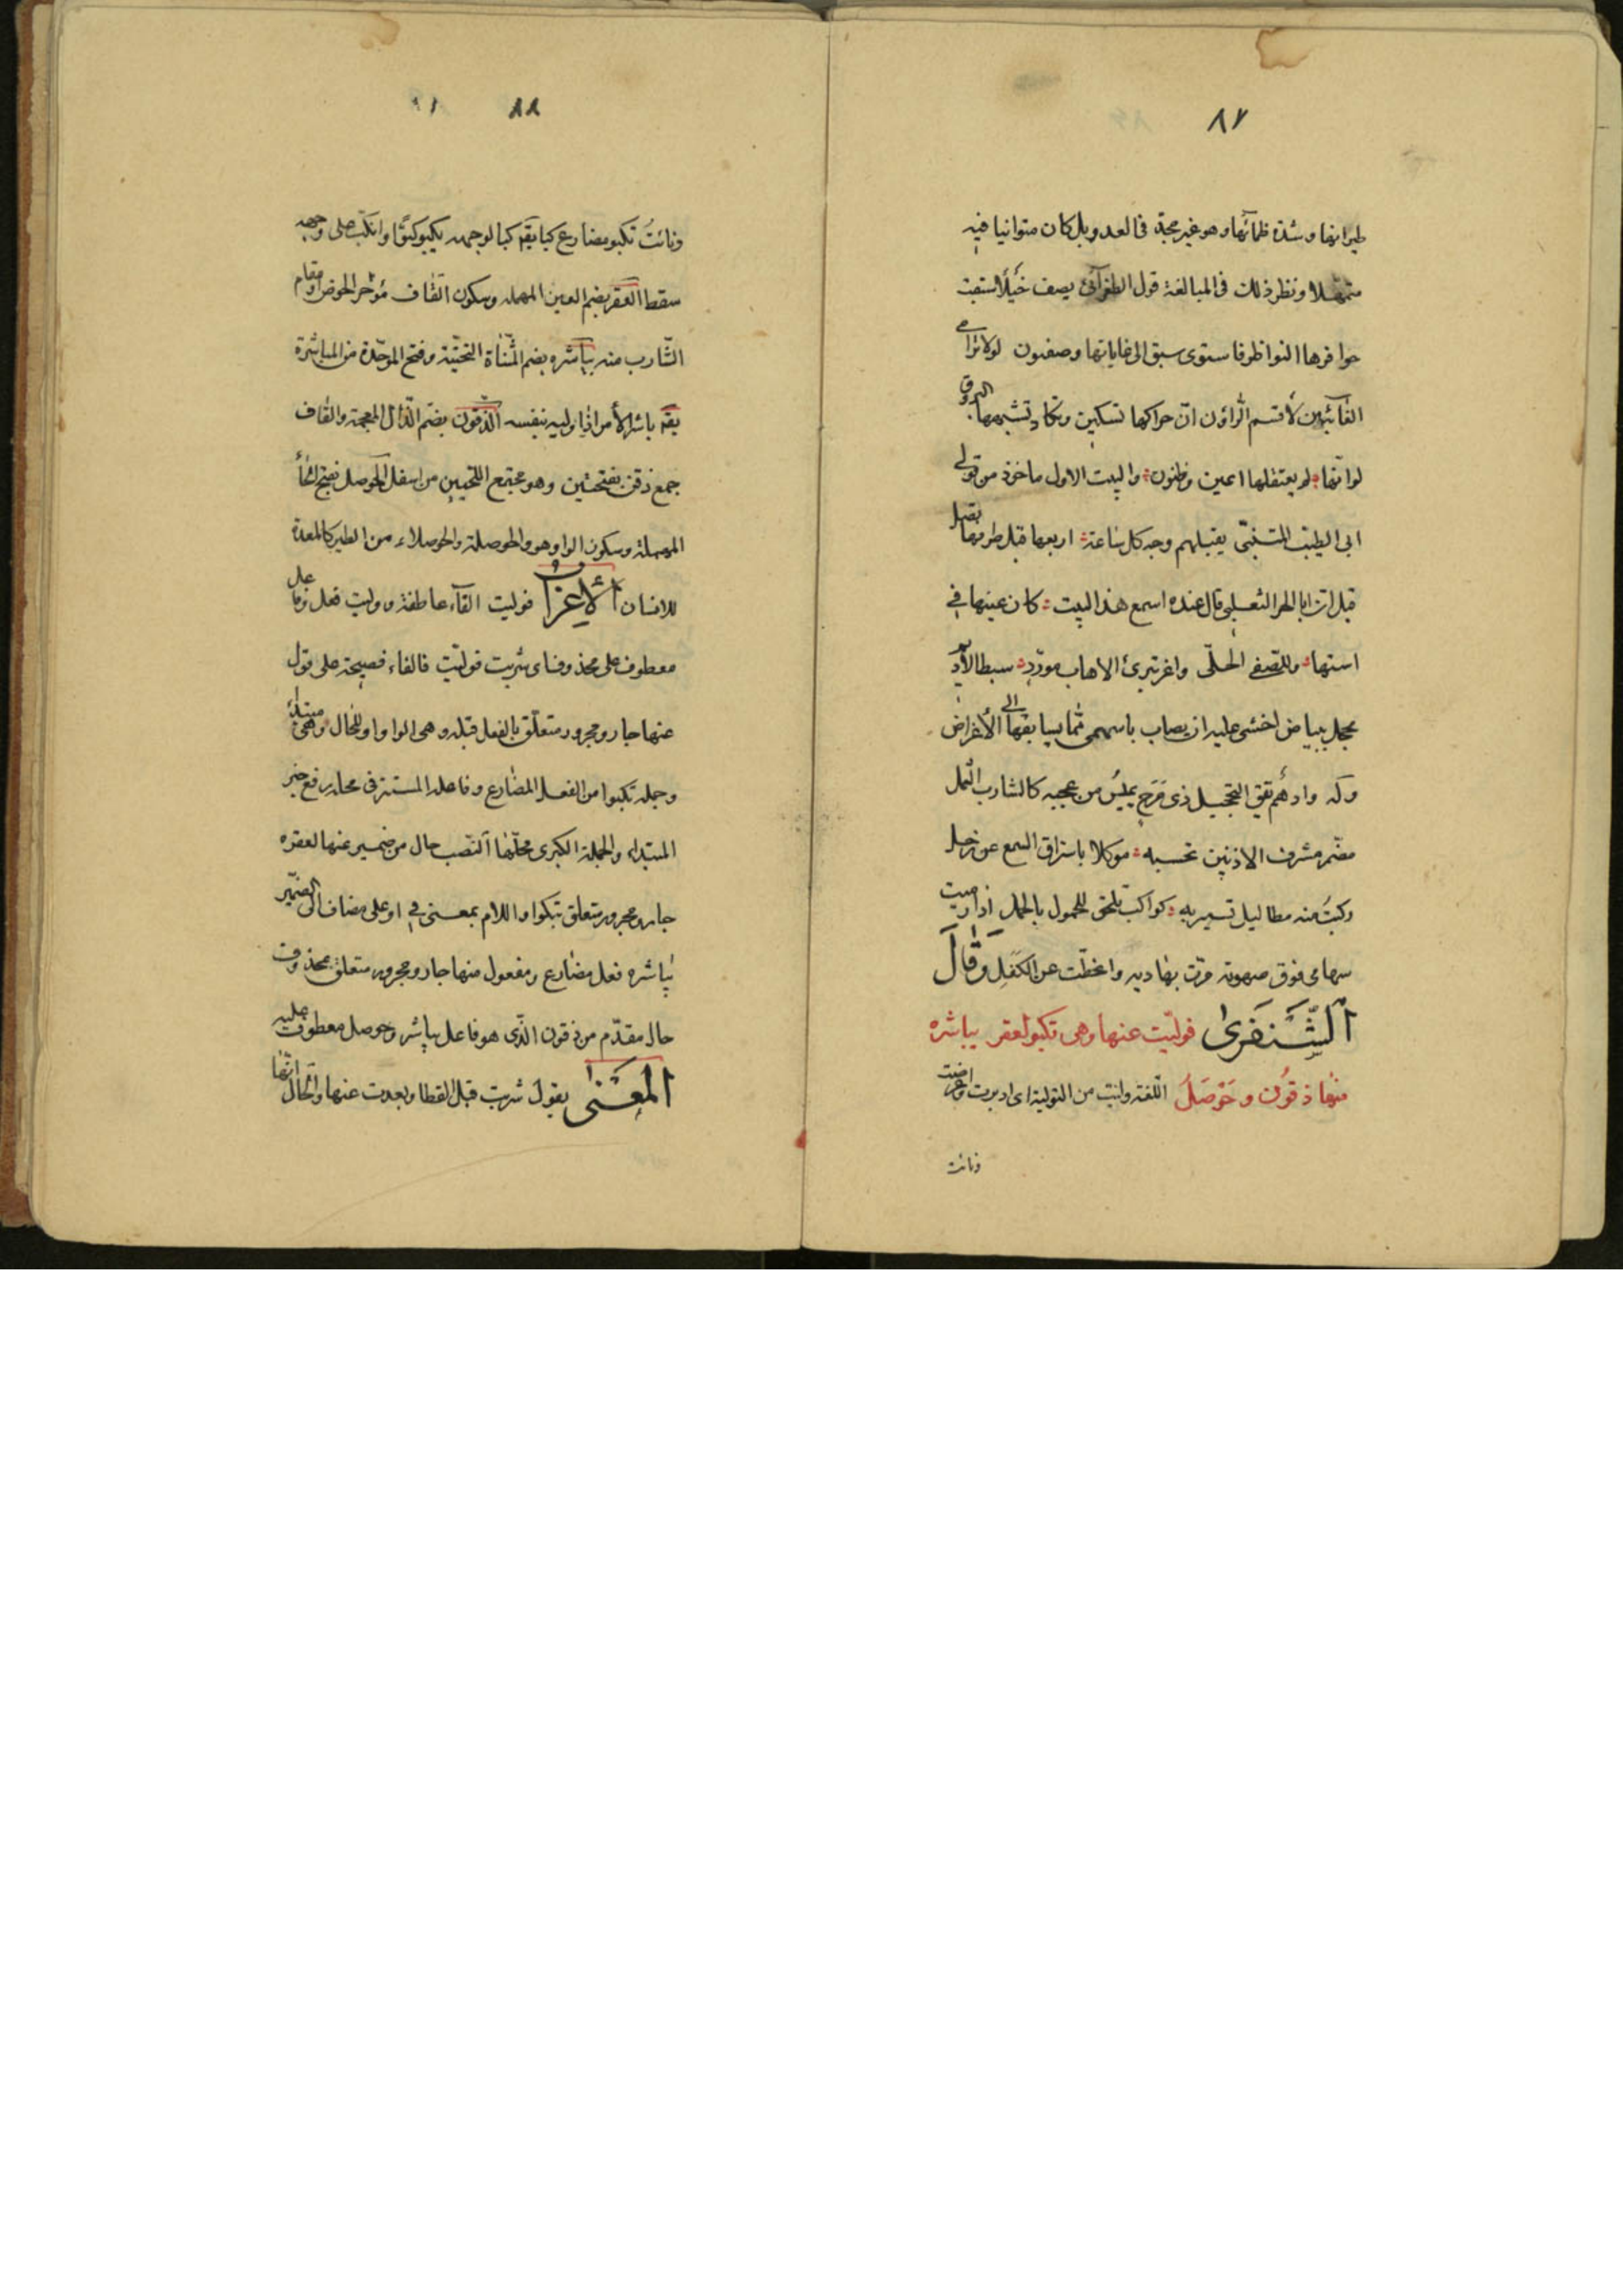 ٨٧
طيرانها وشدة ظمائها وهو غير مجدّ في العدو بل كان متوانيا فيه
متمهّلا ونظر ذلك في المبالغة قول الطغرآئي يصف خَيلًا سبقت
حوافرها النواظر فاستوى سبق الى غاياتها وصفون لولا ترامى
الغآئبين لأقسم الراؤن انّ حراكها تسكين وتكاد تشبهها البروق
لو انّها لم يعتقلها اعين وظنون والبيت الاول ماخوذ من قول
ابى الطيّب المتنبّى يقبلهم وجه كل سابحة اربعها قبل طرفها تصل
قيل انّ ابا الثعلبى قال عنده اسمع هذا البيت كان عينها في
استها وللصفى الحلّى واغر تبرىّ الاهاب مورّد سبط الأديم
محجل ببياض اخشى عليه ان يصاب باسهمى ممّا يسابقها الى الأغراض
وله وادهم يقق التحجيل ذى مَرَح يميسُ من عجبه كالشارب الثّمل
مضمّر مشرف الاذنين تحسبه موكلا باستراق السمع عن زحل
ركبتُ منه مطا ليل تسير به كواكب تلحق المحمول بالحمل اذا رميت
سهامى فوق صهوته مرّت بهاديه وانحطّت عن الكَفَلِ وَقالَ
الشَّنفَرىٰ فوليّت عنها وهى تكبو لعقره يباشره
منها ذقون وحَوْصَلُ اللّغة وليّت من التولية اى ادبرت واعرضت
ونائت
٨٨
ونائتُ تكبو مضارع كبا يقٓ كبا لوجهه يكبو كبوًّا وانكبّ على وجهه
سقط العقر بضم العين المهمله وسكون القاف مؤخر الحوض او مقام
الشّارب منه يباشره بضم المثنّاة التحتيّة وفتح الموحّدة من المباشرة
يقٓ باشر الأمر اذا وليه بنفسه الذقون بضمّ الذّال المعجمة والقاف
جمع ذقن بفتحتين وهو مجتمع اللحيين من اسفل الحوصل بفتح الحاء
المهملة وسكون الواو هو والحوصلة والحوصلاء من الطير كالمعدة
للانسان الأعراب فوليت الفآء عاطفة ووليت فعل وفاعل
معطوف على محذوف اى شربت فوليّت فالفاء فصيحة على قول
عنها جار ومجرور متعلّق بالفعل قبله وهى الواو واو للحال وهى مبتدأ
وجملة تكبوا من الفعل المضارع وفاعله المستتر فى محل رفع خبر
المبتداء والجملة الكبرى محلّها النّصب حال من ضمير عنها لعقره
جار ومجرور متعلق بتكبوا واللام بمعنى في او على مضاف الى الضمير
يباشره فعل مضارع ومفعول منها جار ومجرور متعلق بمحذوف
حال مقدّم من ذقون الذى هو فاعل يباشر وحوصل معطوف عليه
المعنىٰ يقول شربت قبل القطا وبعدت عنها والحال انّها